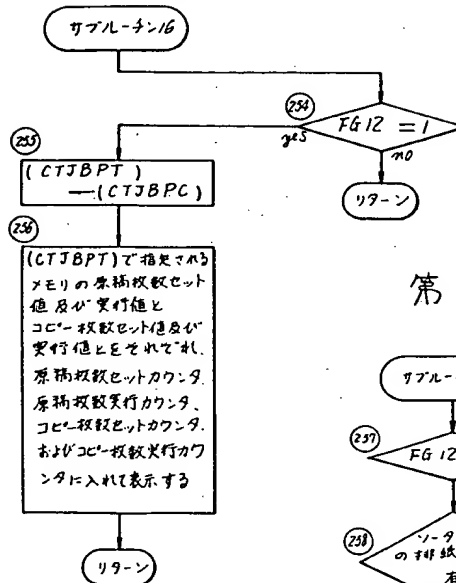 サブルーチン16
254
FG12 = 1
yes
no
リターン
255
(CTJBPT)
—(CTJBPC)
256
(CTJBPT)で指定される
メモリの原稿枚数セット
値及び実行値と
コピー枚数セット値及び
実行値とをそれぞれ、
原稿枚数セットカウンタ、
原稿枚数実行カウンタ、
コピー枚数セットカウンタ、
およびコピー枚数実行カウ
ンタに入れて表示する
リターン
第
サブルー
257
FG12
258
ソータ
の排紙